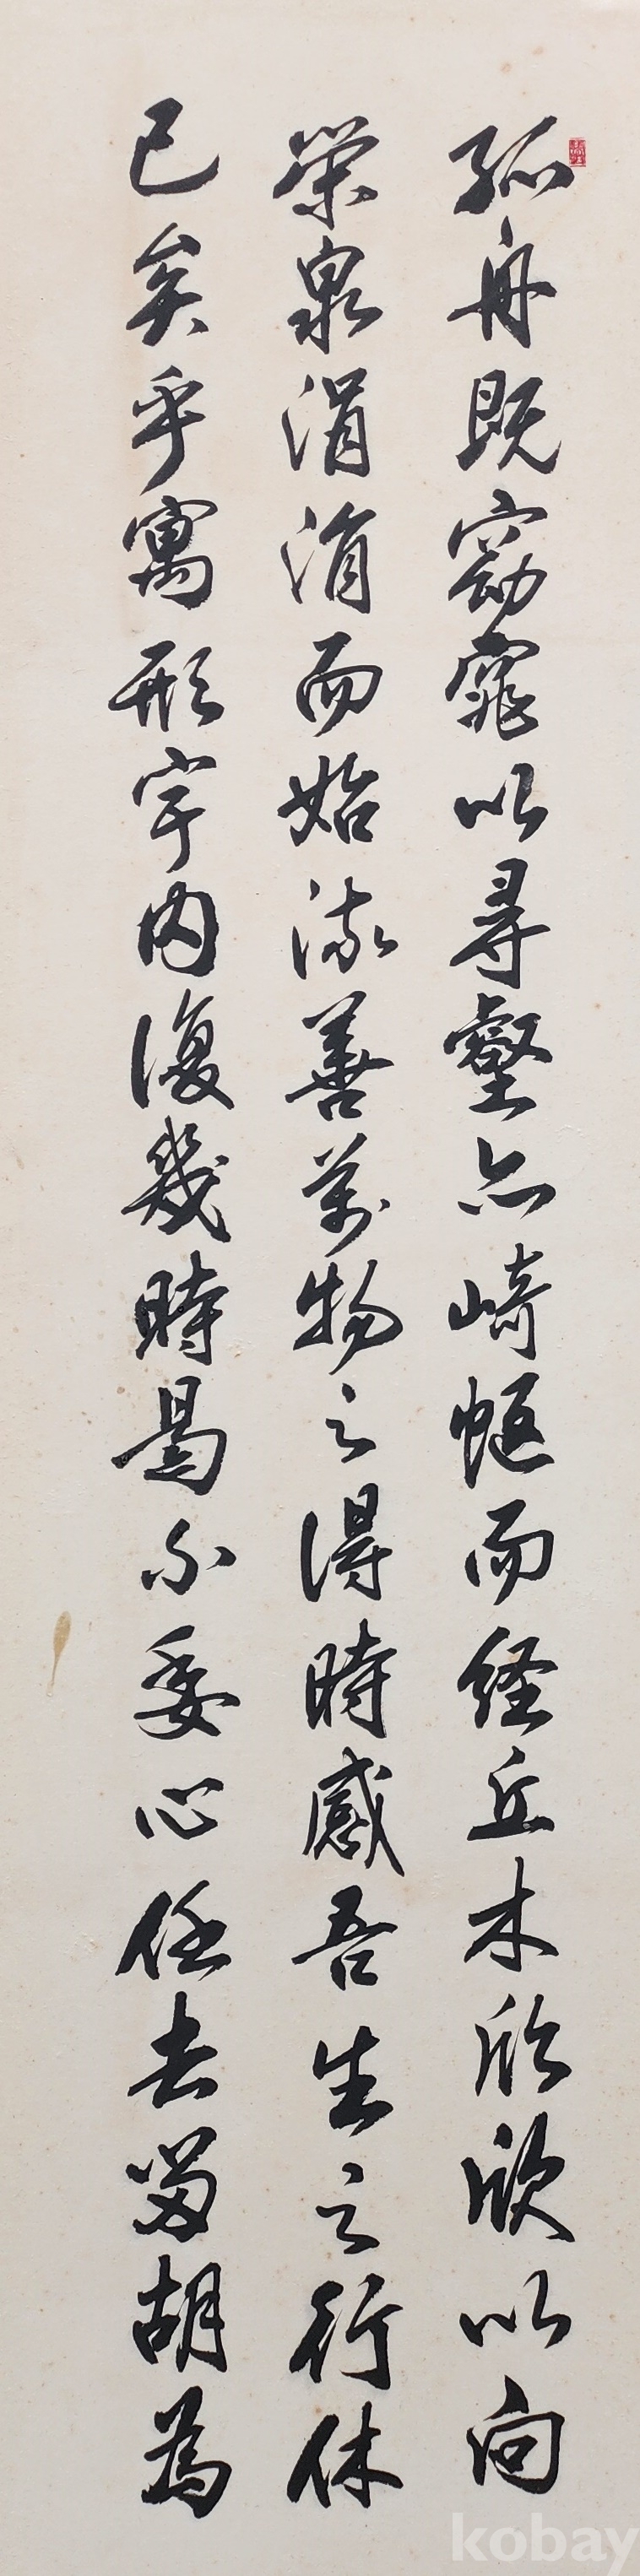 孤舟既窈窕以尋壑亦崎嶇而經丘木欣欣以向
榮泉涓涓而始流善萬物之得時感吾生之行休
已矣乎寓形宇內復幾時曷不委心任去留胡為
kobay